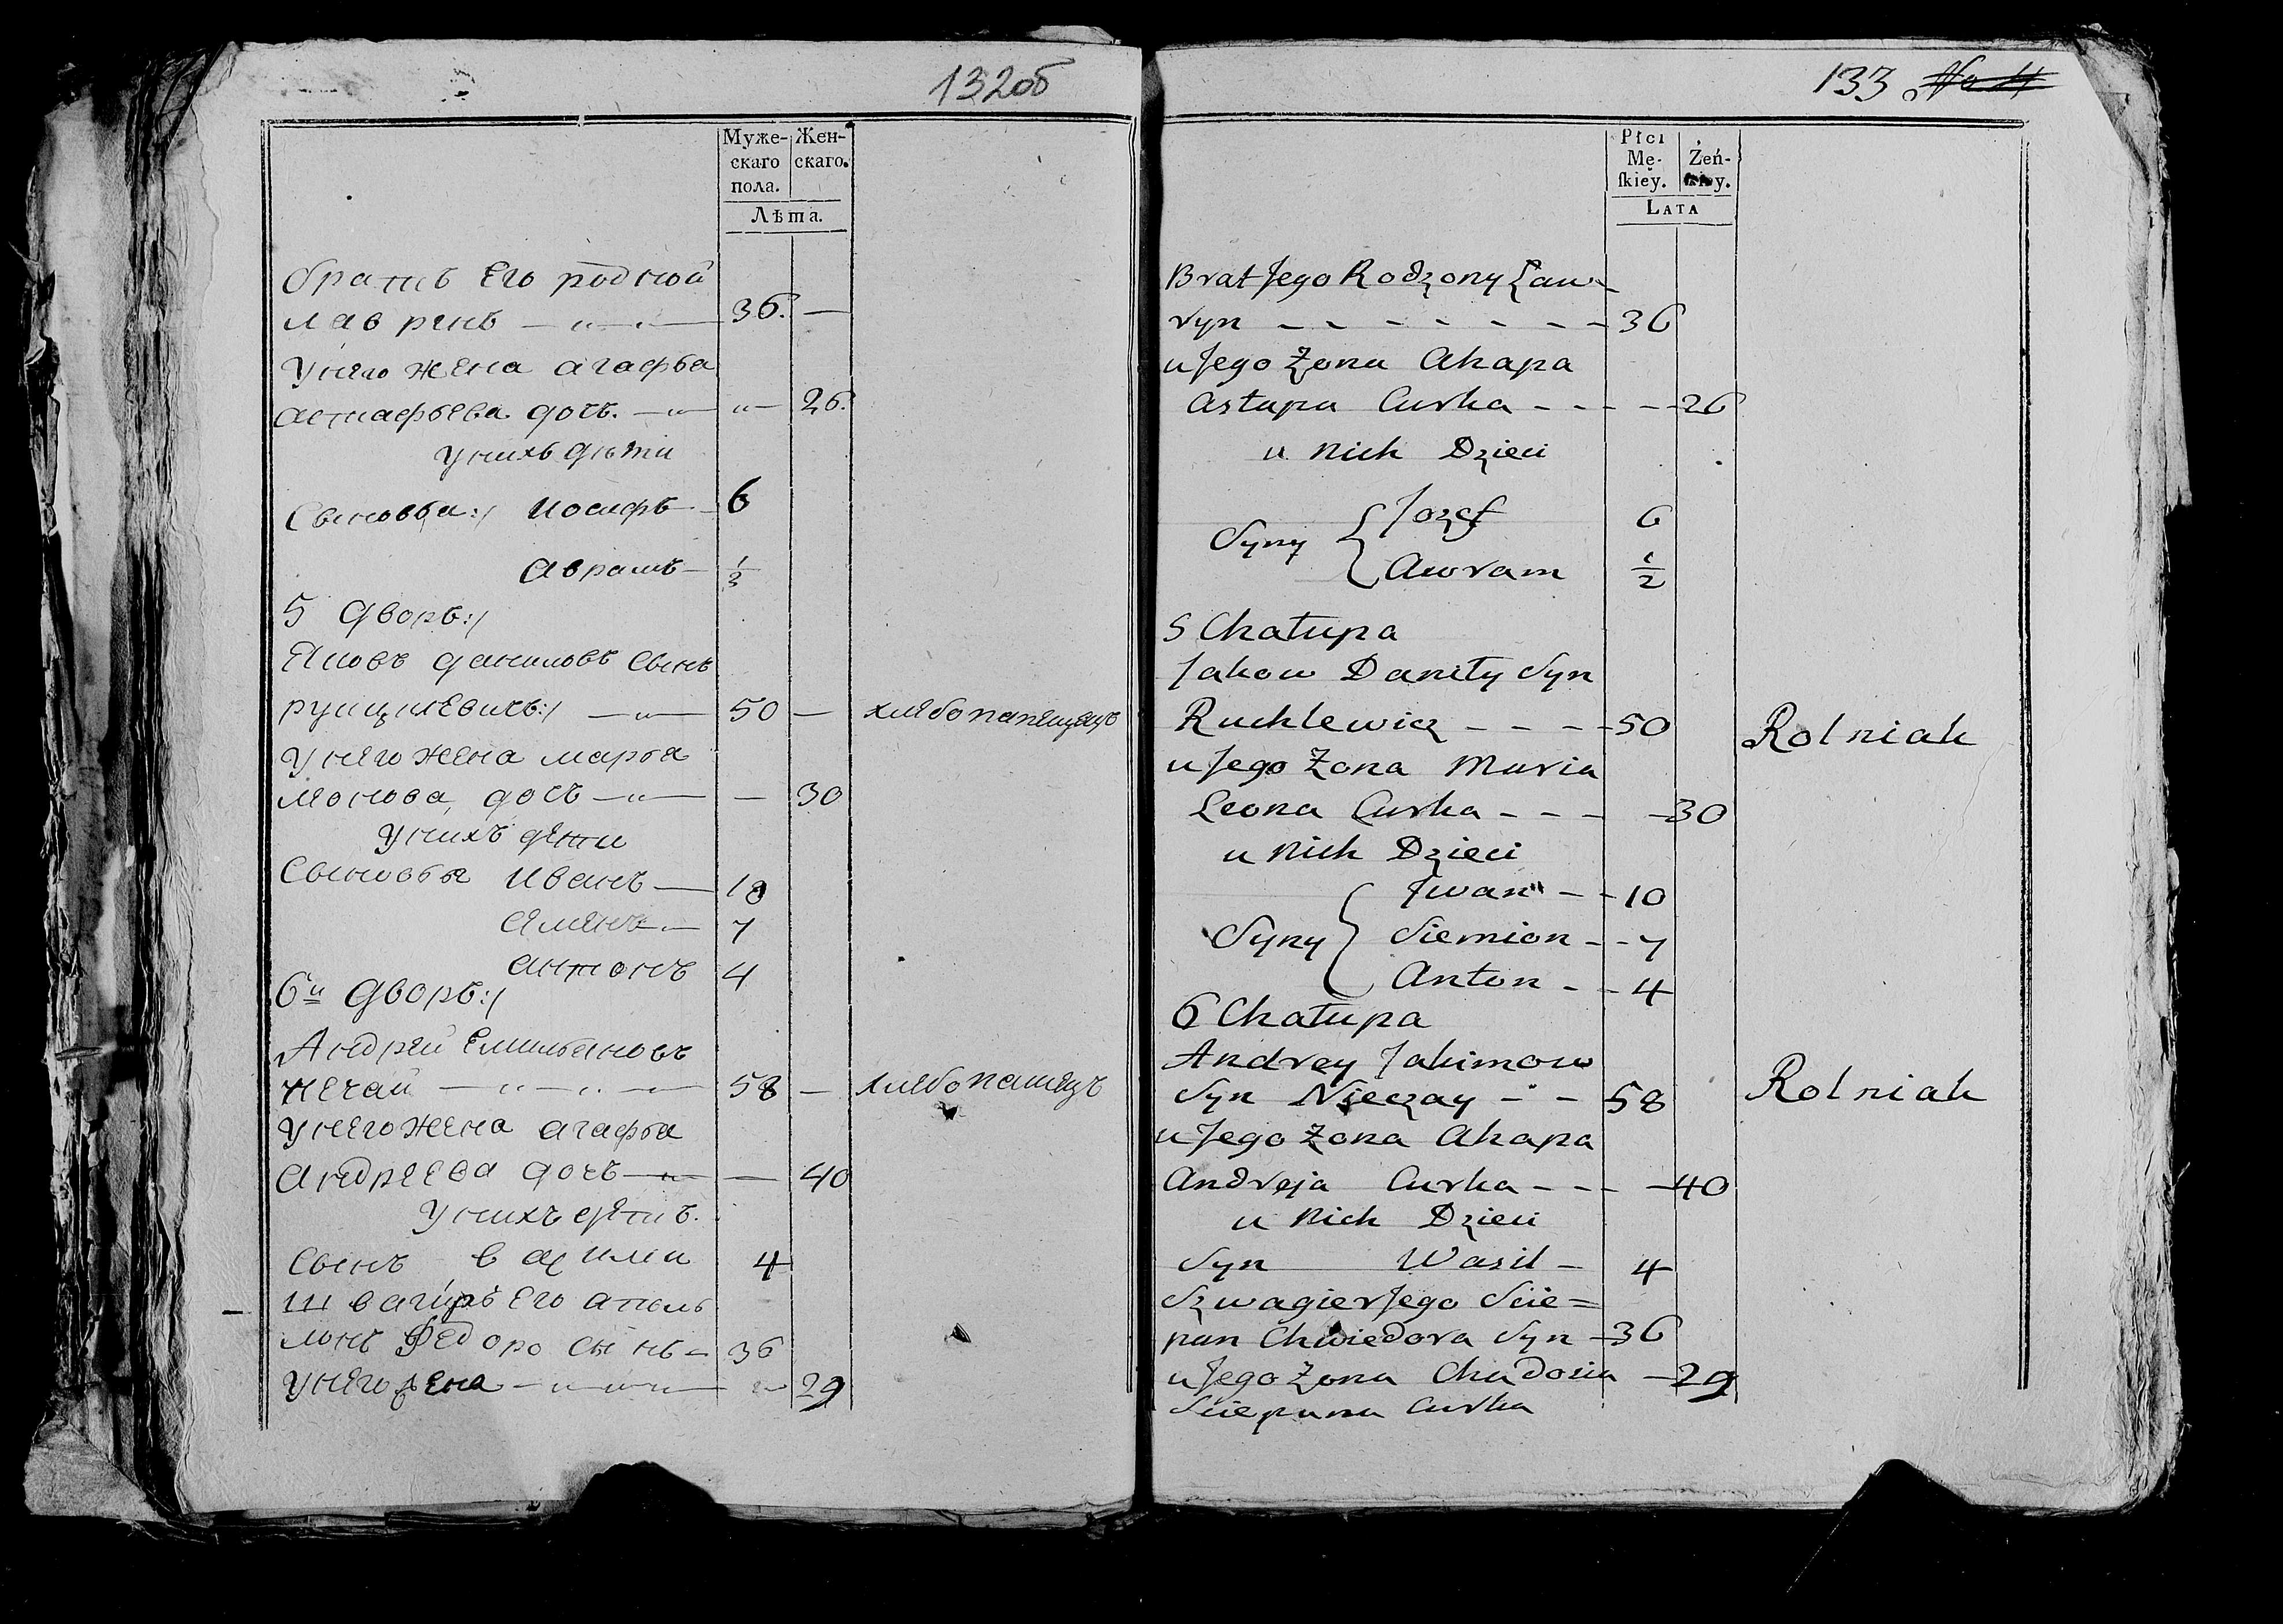 132об
Муже- Жен-
скаго скаго.
пола.
Лѣта.
братъ Его родной
лавринъ 36. —
Унего жена агафья
астафьева дочъ. — 26.
унихъ дѣти
Сыновья:/ иосифъ 6
аврамъ ½
5 дворъ:/
Яковъ даниловъ сынъ
50 — хлебопашецъ
Унего жена марья
леонова дочъ — 30
Унихъ дети
Сыновья иванъ 10
Сменъ 7
антонъ 4
6й дворъ:/
Андрей
нечай 58 — хлебопашецъ
Унего жена агафья
андреева дочъ — 40
Унихъ дети
Сынъ 4
швагиръ Его
Федоро сынъ 36
унего жена 29
133 No 4
Płci
Mę- Żeń-
skiey. skiey.
LATA
Brat Jego Rodzony Ław-
ryn 36
u Jego Żona Ahapa
Astapa Curka 26
u Nich Dzieci
Syny { Jozef 6
Awram ½
5 Chałupa
Jakow Daniły Syn
Ruchlewicz 50 Rolniak
u Jego Żona Maria
Leona Curka 30
u Nich Dzieci
Iwan 10
Syny { Siemion 7
Anton 4
6 Chałupa
Andrey Jakimow
Syn Nieczay 58 Rolniak
u Jego Żona Ahapa
Andreja Curka 40
u Nich Dzieci
Syn Wasil 4
Szwagier Jego Ście=
pan Chwiedora Syn 36
u Jego Żona Chadosia 29
Ściepana Curka